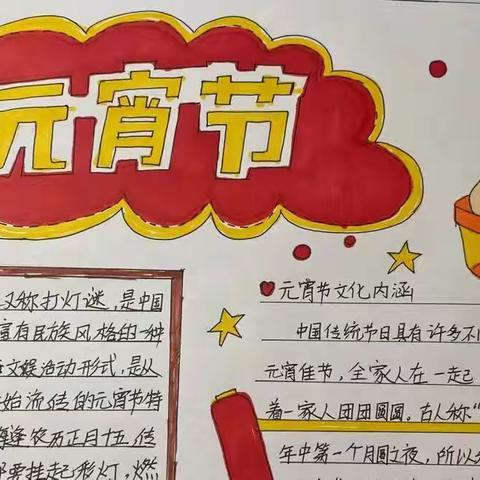 元宵节
又称打灯谜，是中国
富有民族风格的一种
文娱活动形式，是从
始流传的元宵节特
每逢农历正月十五，传
要挂起彩灯，燃
元宵节文化内涵
中国传统节日具有许多不
元宵佳节，全家人在一起
着一家人团团圆圆。古人称“
年中第一个月圆之夜，所以